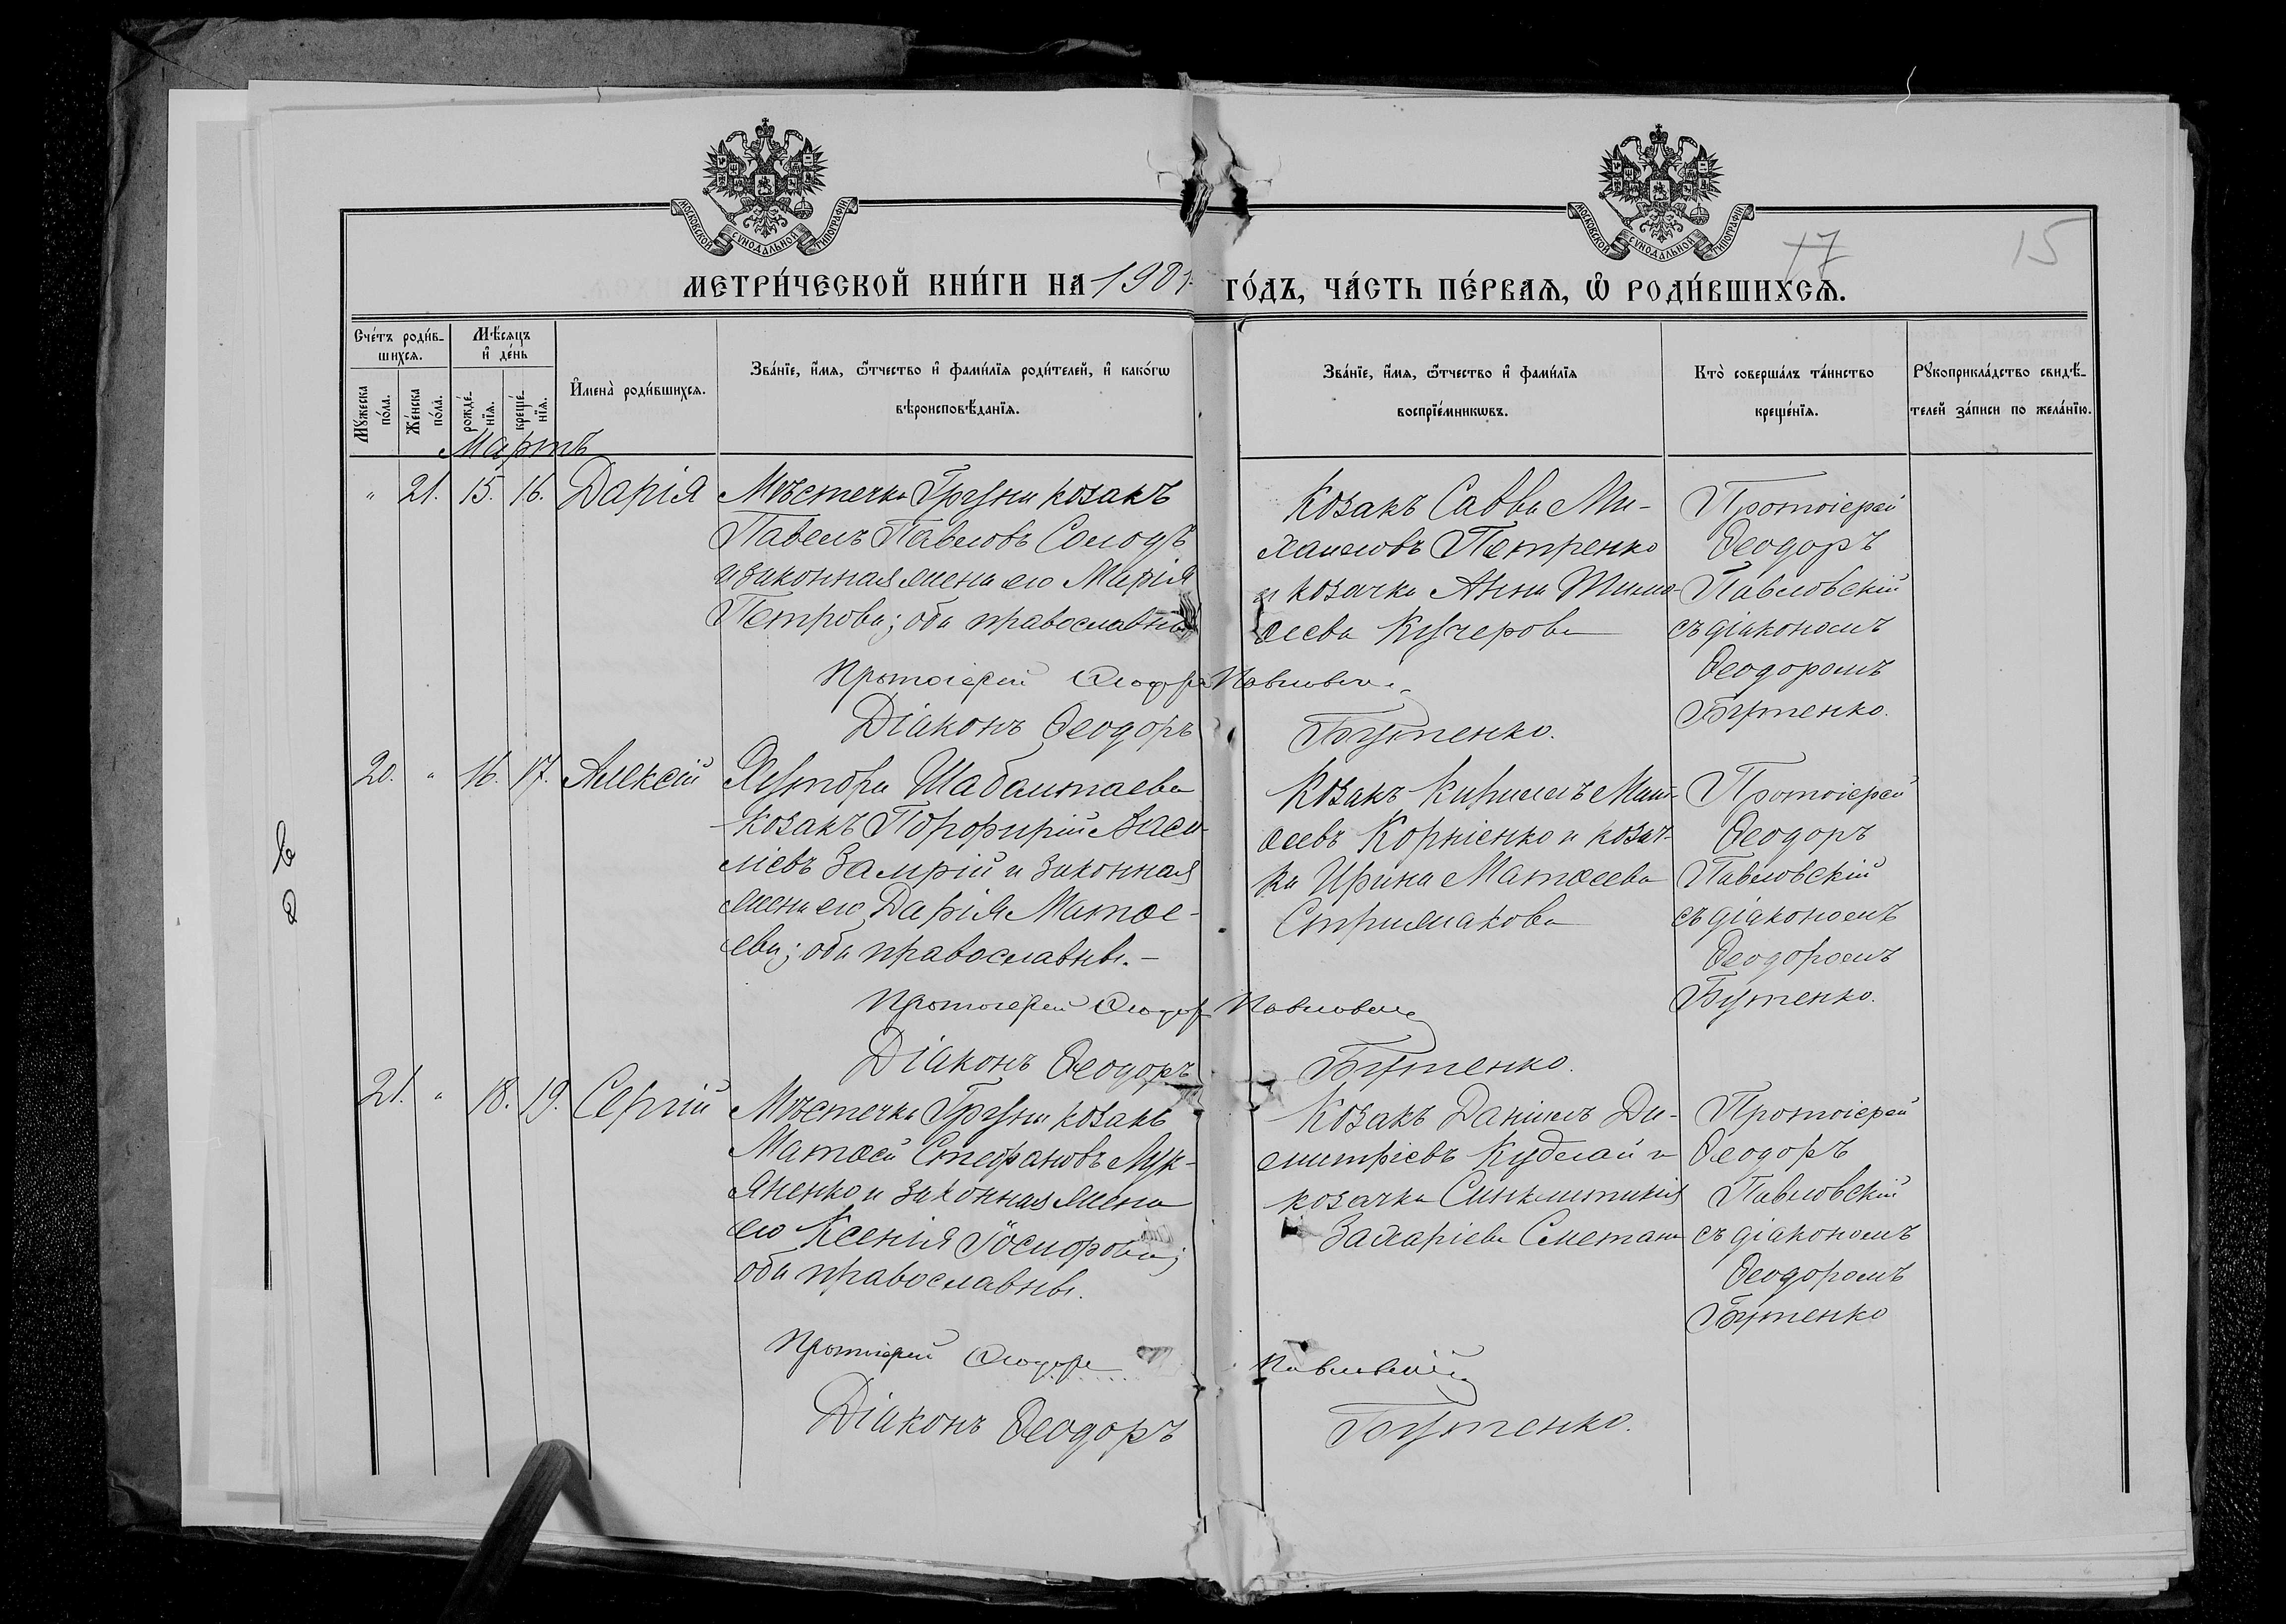 МОСКОВСКОЙ СѴНОДАЛЬНОЙ ТИПОГРАФІИ
МОСКОВСКОЙ СѴНОДАЛЬНОЙ ТИПОГРАФІИ
17
15
МЕТРИ́ЧЕСКОЙ КНИ́ГИ НА 1901 ГО́ДЪ, ЧА́СТЬ ПЕ́РВАѦ, Ѡ҆ РОДИ́ВШИХСѦ.
Сче́тъ роди́в-
шихсѧ.
Мѣ́сѧцъ
и҆ де́нь
Мꙋ́жеска
по́ла.
Же́нска
по́ла.
рожде́-
нїѧ.
креще́-
нїѧ.
И҆мена̀ роди́вшихсѧ.
Зва́нїе, и҆́мѧ, ѻ҆́тчество и҆ фами́лїѧ роди́телей, и҆ како́гѡ
вѣроисповѣ́данїѧ.
Зва́нїе, и҆́мѧ, ѻ҆́тчество и҆ фами́лїѧ
воспрїе́мникѡвъ.
Кто̀ соверша́лъ та́инство
креще́нїѧ.
Рꙋкоприкла́дство свидѣ́-
телей за́писи по жела́нїю.
Мартъ
" 21. 15. 16. Дарія
Мѣстечка Груни козакъ
Павелъ Павловъ Солодъ
и законная жена его Марія
Петрова; оба православны
Козакъ Савва Ми-
хаиловъ Петренко
и козачка Анна Тимо-
ѳеева Кучерова
Протоіерей
Ѳеодоръ
Павловскій
съ діакономъ
Ѳеодоромъ
Бутенко.
Протоіерей Ѳеодоръ Павловскій
Діаконъ Ѳеодоръ Бутенко.
20. " 16. 17. Алексій
Хутора Шабалтаева
козакъ Порфирій Васи-
ліевъ Замрій и законная
жена его Дарія Матѳе-
ева; оба православны.-
Козакъ Кириллъ Мат-
ѳеевъ Корніенко и козач-
ка Ирина Матѳеева
Стрижакова
Протоіерей
Ѳеодоръ
Павловскій
съ діакономъ
Ѳеодоромъ
Бутенко.
Протоіерей Ѳеодоръ Павловскій
Діаконъ Ѳеодоръ Бутенко.
21. " 18. 19. Сергій
Мѣстечка Груни козакъ
Матѳей Стефановъ Лук-
яненко и законная жена
его Ксенія
оба православны.
Козакъ Даніилъ Ди-
митріевъ Куделай и
козачка Синклитикія
Захаріева Сметана
Протоіерей
Ѳеодоръ
Павловскій
съ діакономъ
Ѳеодоромъ
Бутенко
Протоіерей Ѳеодоръ Павловскій
Діаконъ Ѳеодоръ Бутенко.